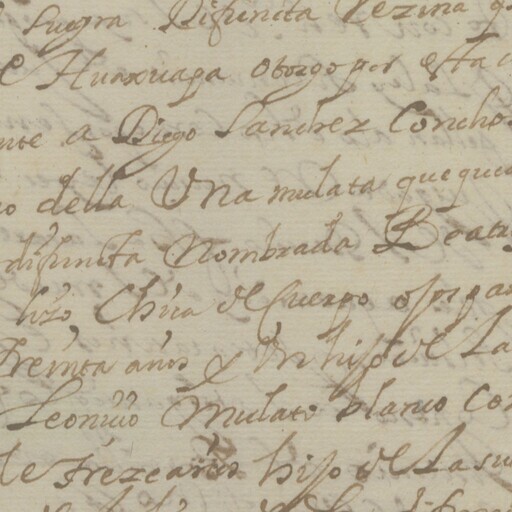 Suegra Difuncta Vezina q
e Huaxuapa otorgo por esta
nte a Diego Sanchez Concho
o della Una mulata que que
difuncta Nombrada Beatr
hizo, Chica de Cuerpo ojos
Treinta años y Un hijo de La
Leonicio Mulato blanco Co
de Treze años hijo de La su